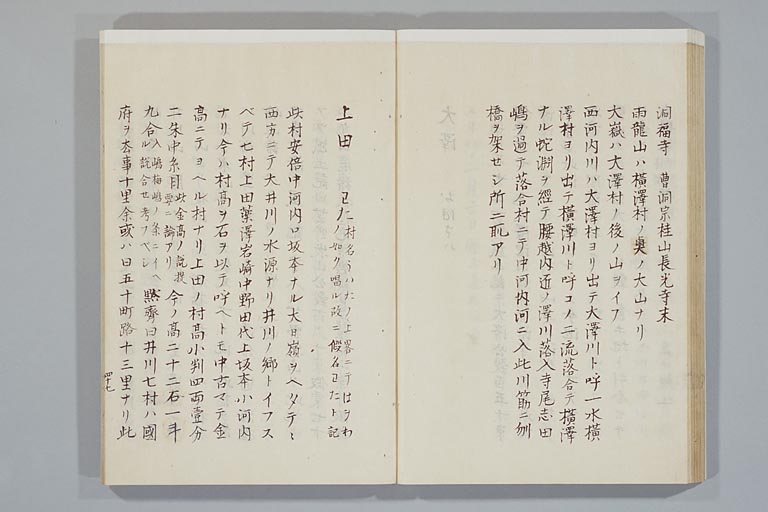 洞福寺　曹洞宗桂山長光寺末
雨龍山ハ横澤村ノ奥ノ大山ナリ
大嶽ハ大澤村ノ後ノ山ヲイフ
西河内川ハ大澤村ヨリ出テ大澤川ト呼一水横
澤村ヨリ出テ横澤川ト呼コノ二流落合テ横澤
ナル蛇淵ヲ經テ腰越内近ノ澤川落入寺尾志田
嶋ヲ過テ落合村ニテ中河内河ニ入此川筋ニ刎
橋ヲ架セシ所二所アリ
上田
此村安倍中河内ロ坂本ナル大日嶺ヲヘダテヽ
西方ニテ大井川ノ水源ナリ井川ノ郷トイフス
ベテ七村上田薬澤岩崎中野田代上坂本小河内
ナリ今ハ村高ヲ石ヲ以テ呼ヘトモ中古マテ金
高ニテヨヘル村ナリ上田ノ村高小判四両壹分
二朱中糸目此金高ノ説授
零ニ論アリ今ノ高二十二石一斗
九合入嶋梅嶋ノ条ニイヘ
ル説合セ考フベシ黙齊曰井川七村ハ國
府ヲ去事十里余或ハ曰五十町路十三里ナリ此
四十七